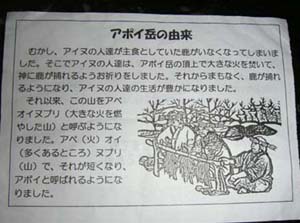 アポイ岳の由来
むかし、アイヌの人達が主食としていた鹿がいなくなってしまいま
した。そこでアイヌの人達は、アポイ岳の頂上で大きな火を焚いて、
神に鹿が捕れるようお祈りをしました。それからまもなく、鹿が捕
れるようになり、アイヌの人達の生活が豊かになりました。
それ以来、この山をアペ
オイヌプリ(大きな火を燃
やした山)と呼ぶようにな
りました。アペ(火)オイ
(多くあるところ)ヌプリ
(山)で、それが短くなり、
アポイと呼ばれるようにな
りました。